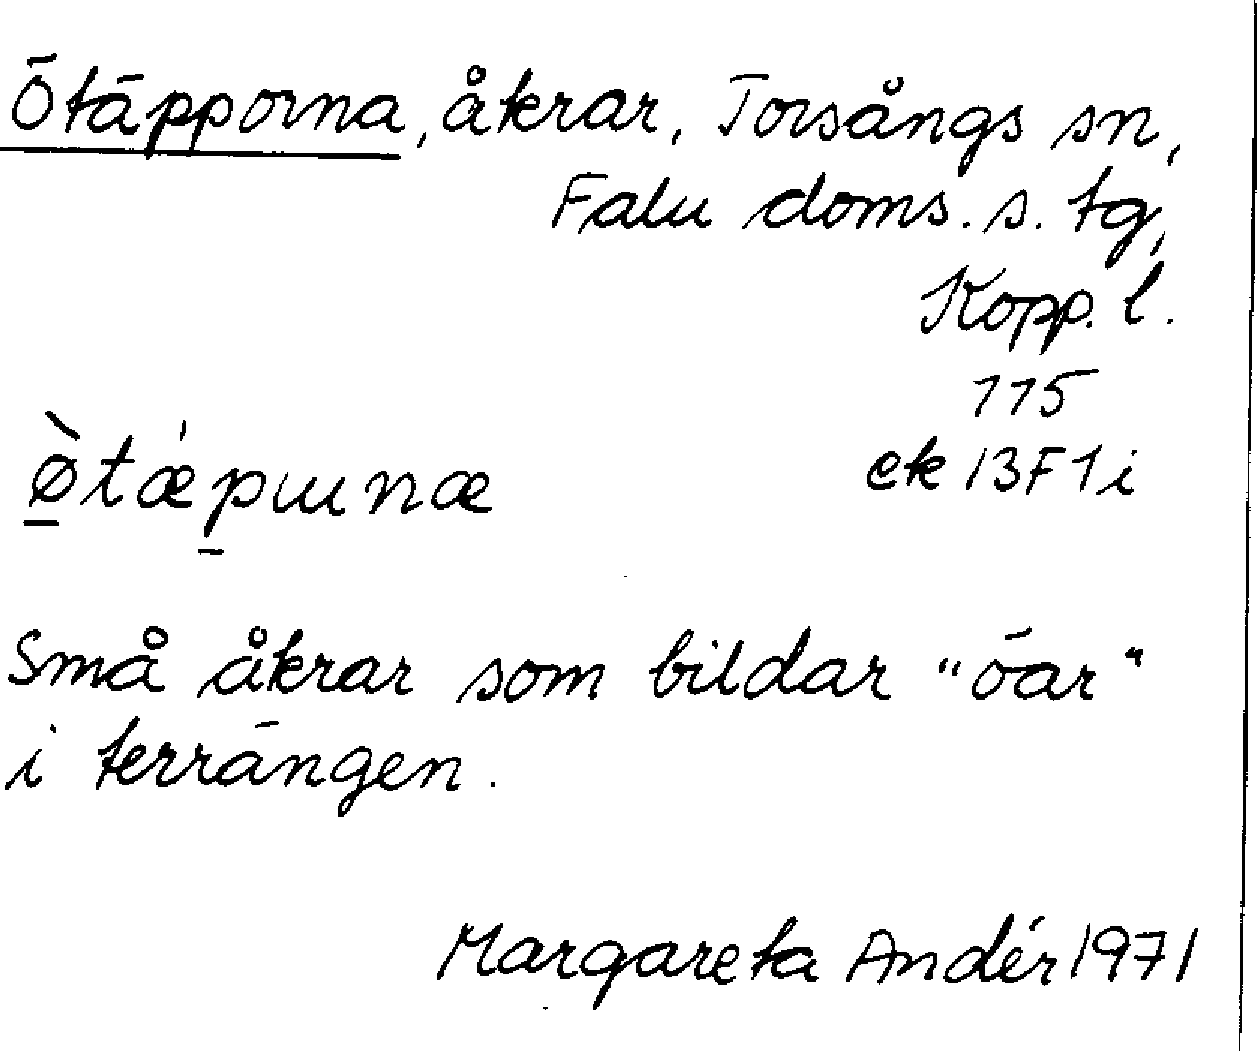 Ötäpporna, åkrar, Torsångs sn,
Falu doms. s. tg,
Kopp. l.
115
ek 13F1i
ø̀tǽpɯnæ
Små åkrar som bildar "öar"
i terrängen.
Margareta Andér 1971